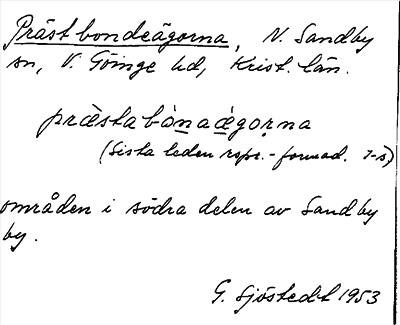 Prästbondeägorna, N. Sandby
sn, V. Göinge hd, Krist. län.
præ̀stabònaǽgoṛna
(Sista leden rspr.-formad. 
områden i södra delen av Sandby
by.
G. Sjöstedt 1953